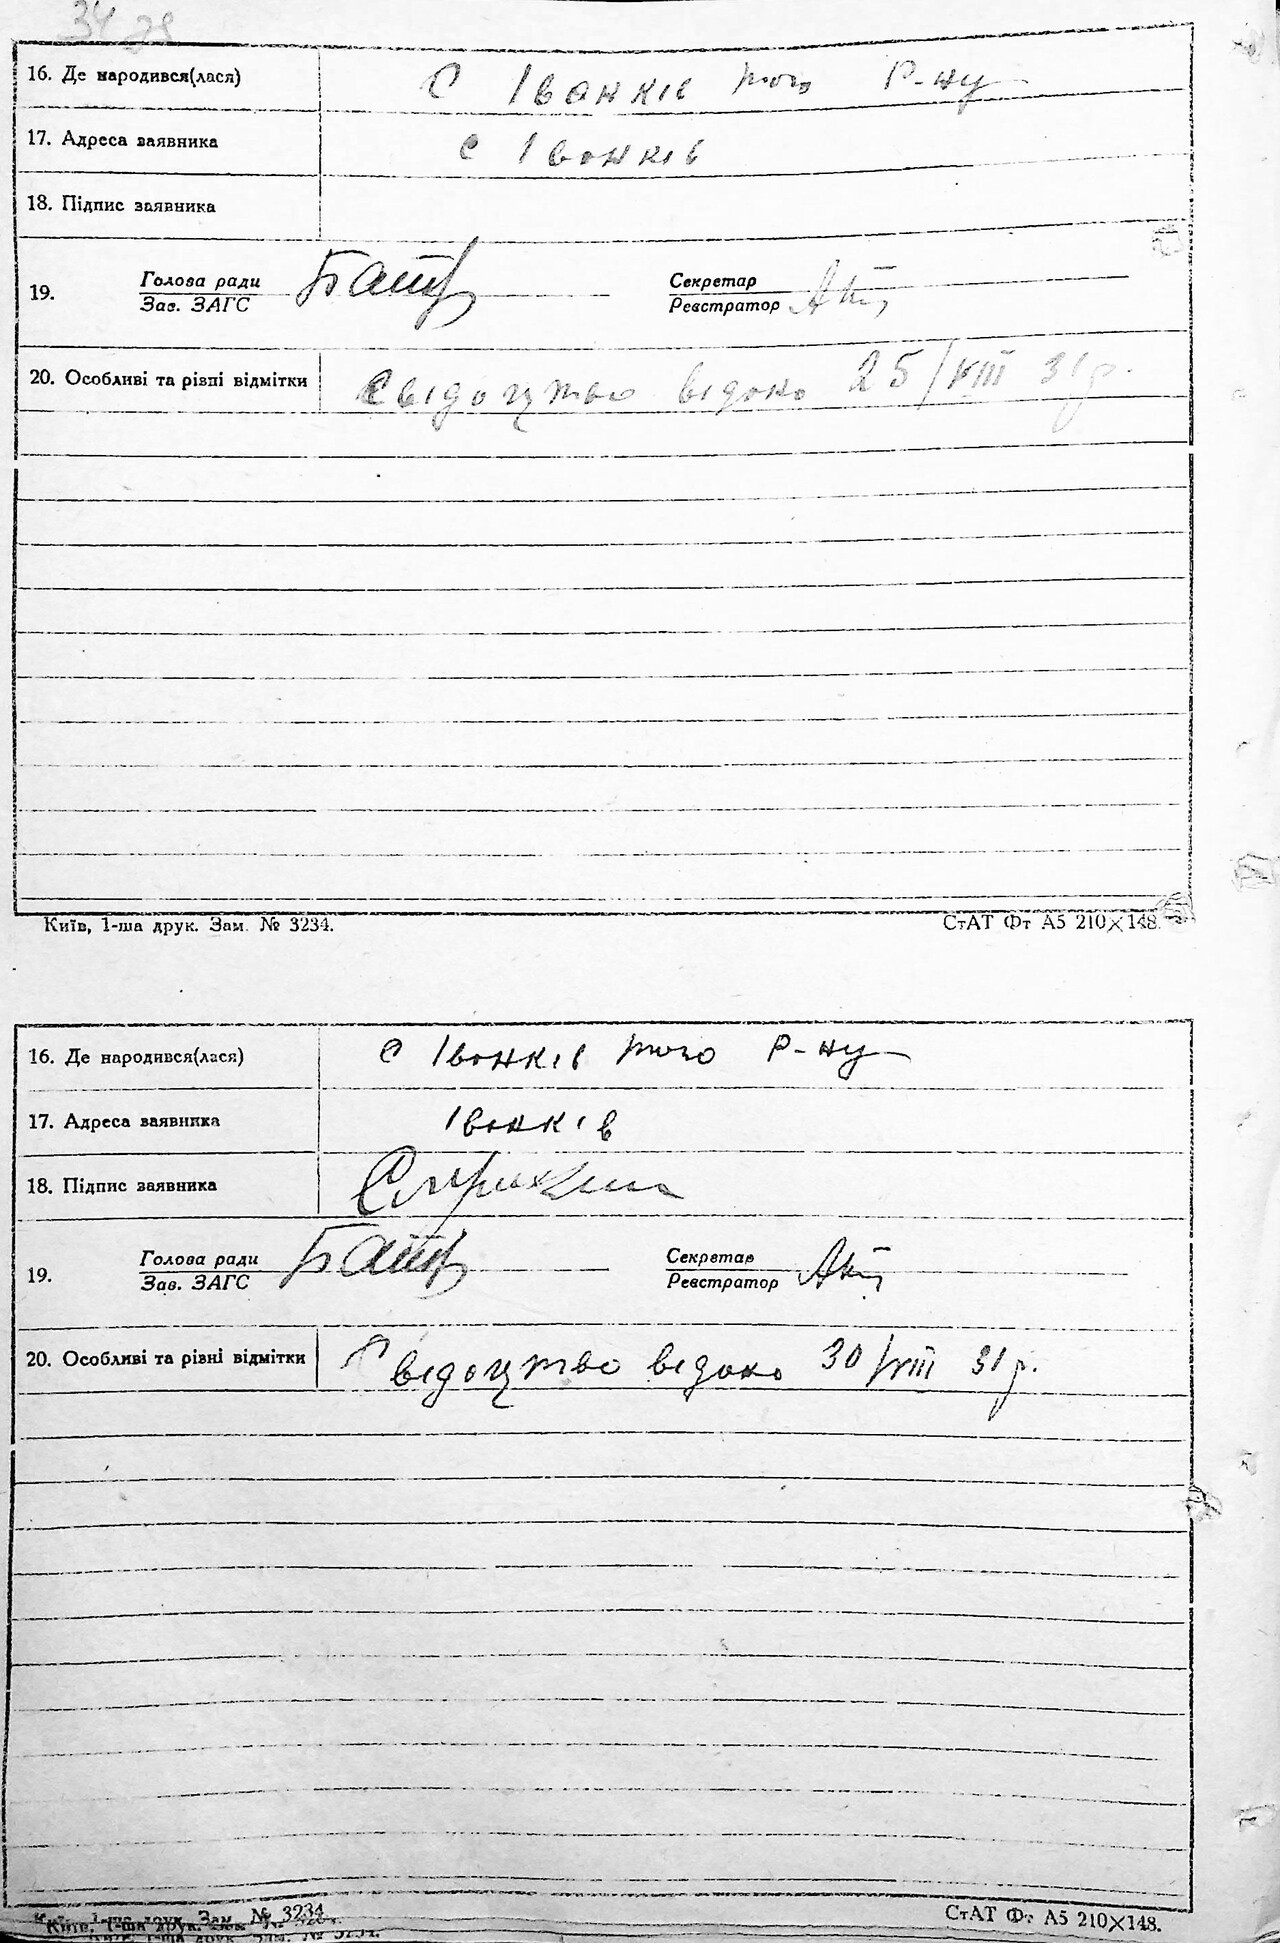 16. Де народився(лася) С Іванків того р-ну
17. Адреса заявника с Іванків
18. Підпис заявника
19. Голова ради Секретар
Зав. ЗАГС Реєстратор
20. Особливі та рівні відмітки Свідоцтво видано 25/VIII 31р.
Київ, 1-ша друк. Зам. № 3234. СтАТ Фт А5 210×148.
16. Де народився(лася) с Іванків того р-ну
17. Адреса заявника Іванків
18. Підпис заявника
19. Голова ради Секретар
Зав. ЗАГС Реєстратор
20. Особливі та рівні відмітки Свідоцтво видано 30/VIII 31р.
Київ, 1-ша друк. Зам. № 3234. СтАТ Фт А5 210×148.